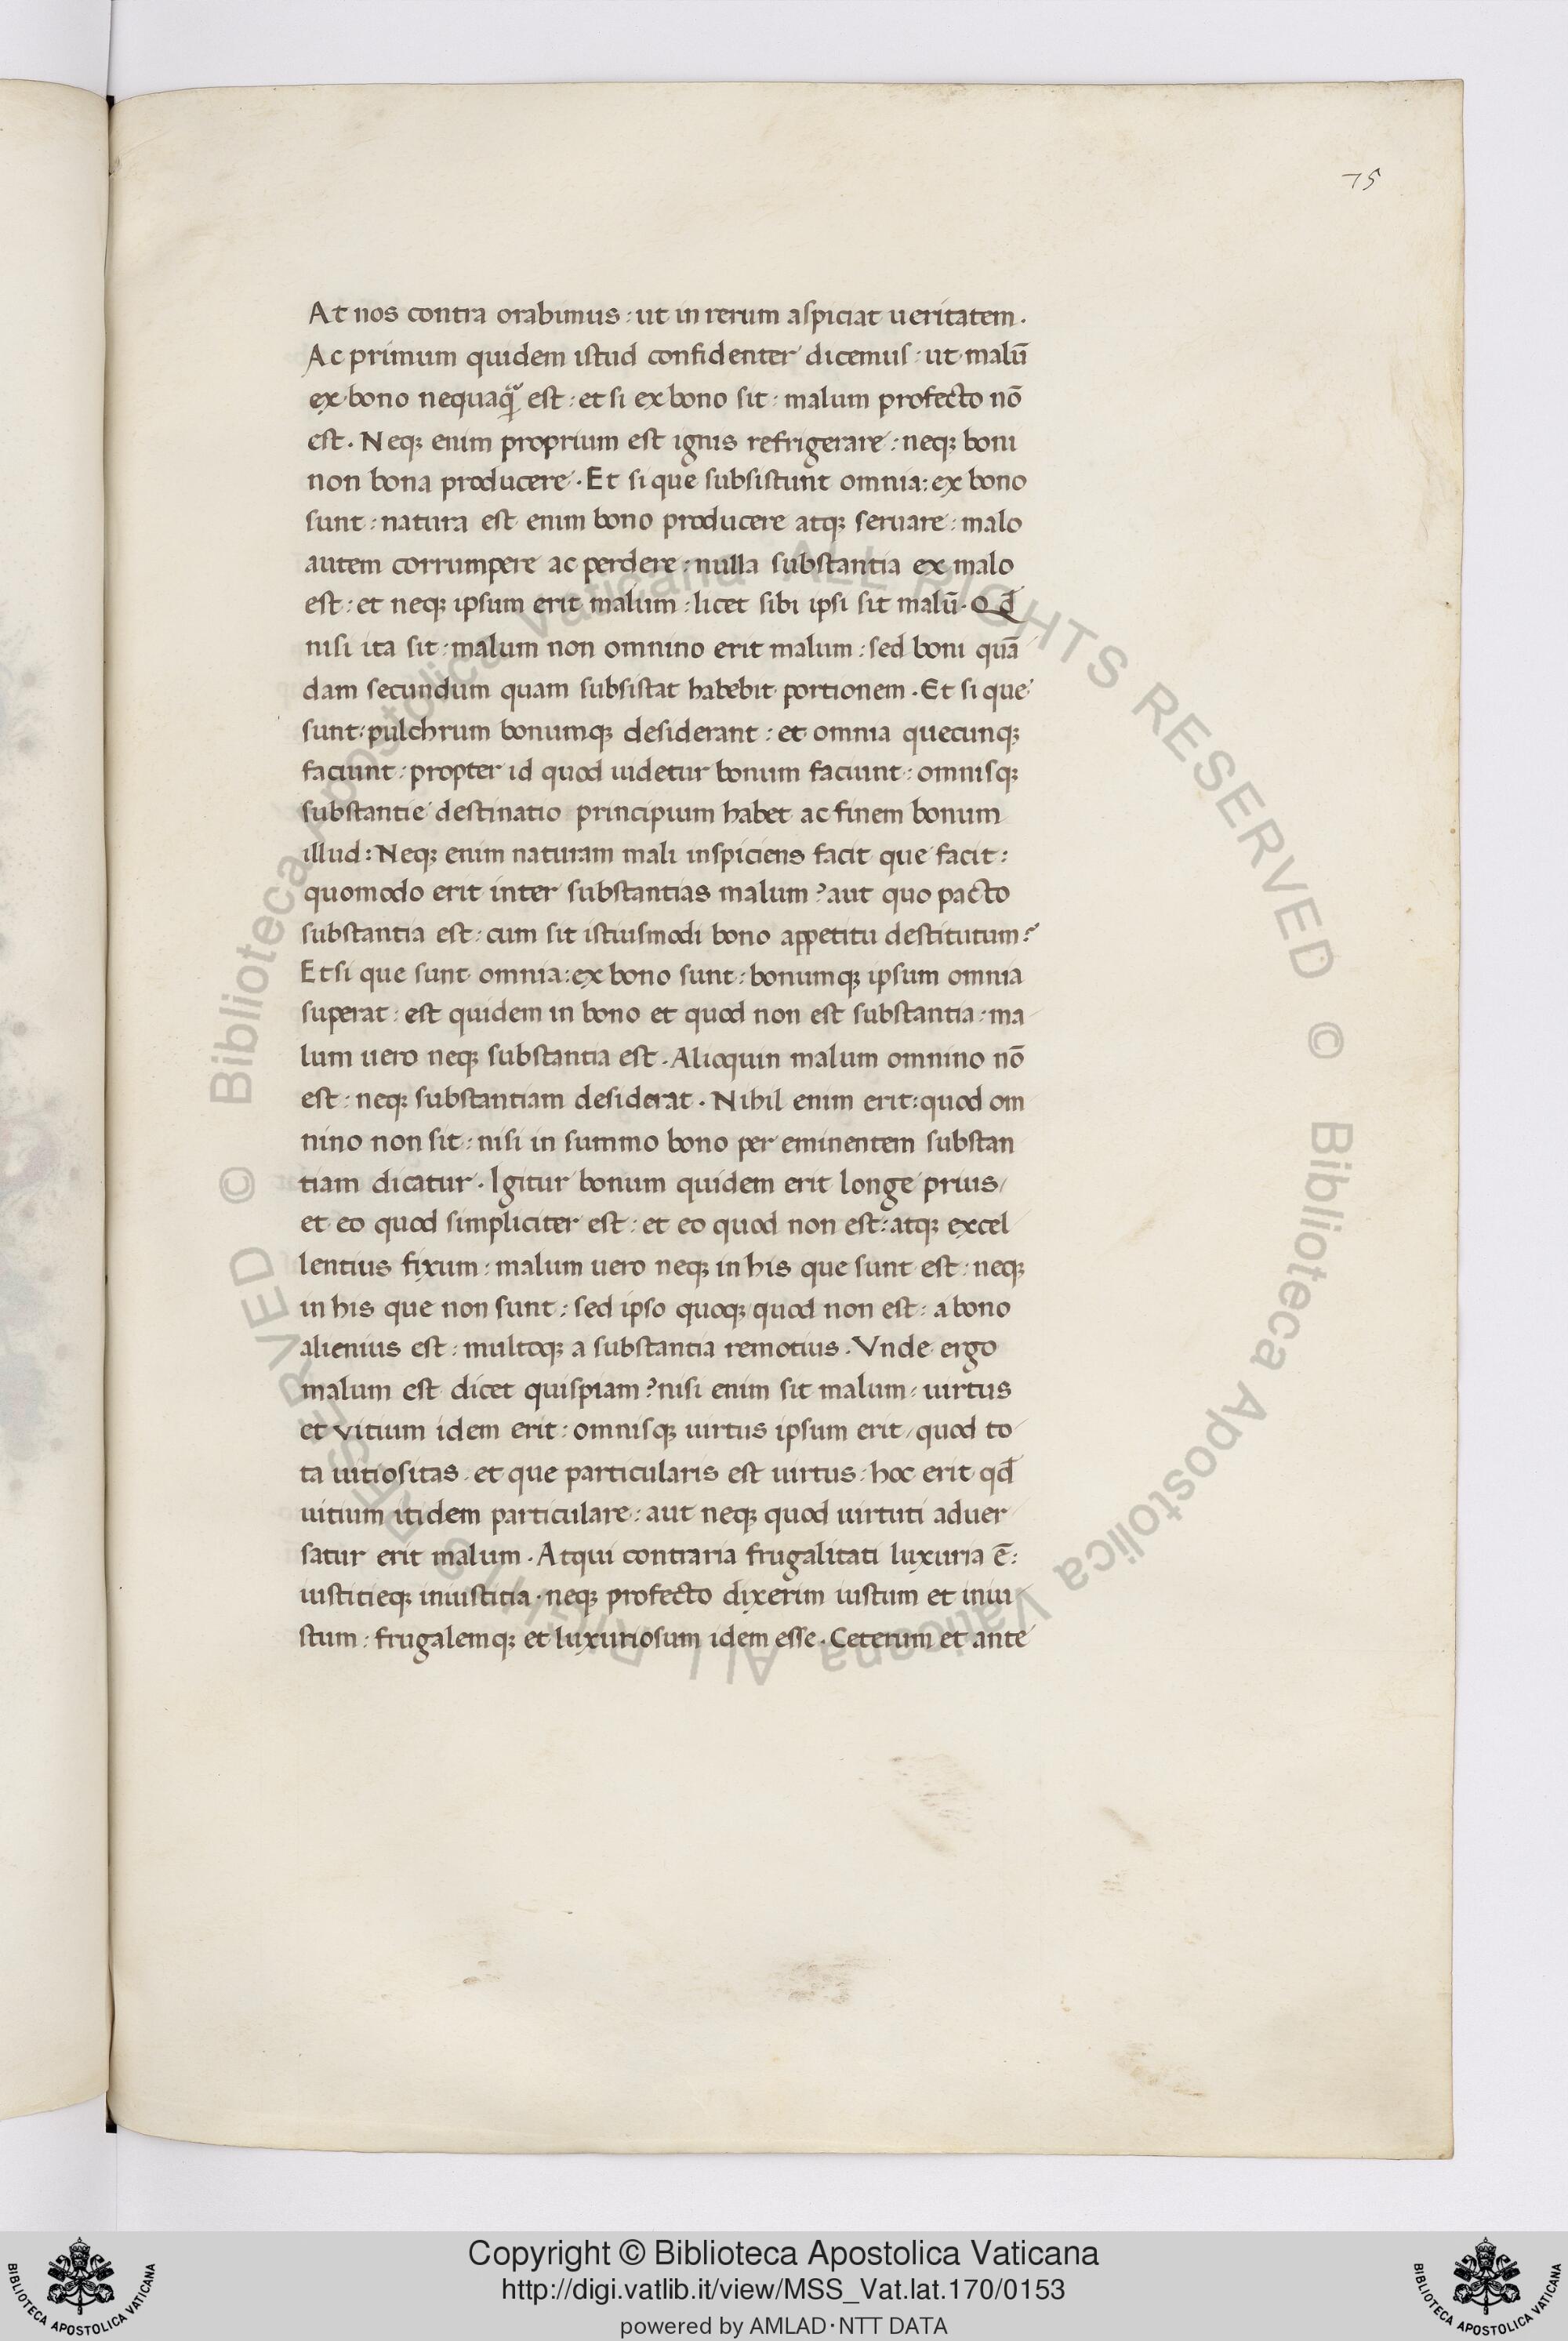 75
At nos contra orabimus: ut in rerum aspiciat ueritatem.
Ac primum quidem istud confidenter dicemus: ut malū
ex bono nequaq̃ est: et si ex bono sit: malum profecto nō
est. Neqꝫ enim proprium est ignis refrigerare: neqꝫ boni
non bona producere. Et si que subsistunt omnia: ex bono
sunt: natura est enim bono producere atqꝫ seruare: malo
autem corrumpere ac perdere: nulla substantia ex malo
est: et neqꝫ ipsum erit malum: licet sibi ipsi sit malū. Qđ
nisi ita sit: malum non omnino erit malum: sed boni quā
dam secundum quam subsistat habebit portionem. Et si que
sunt: pulchrum bonumqꝫ desiderant: et omnia quecunqꝫ
faciunt: propter id quod uidetur bonum faciunt: omnisqꝫ
substantie destinatio principium habet ac finem bonum
illud: Neqꝫ enim naturam mali inspiciens facit que facit:
quomodo erit inter substantias malum? aut quo pacto
substantia est: cum sit istiusmodi bono appetitu destitutum?
Et si que sunt omnia: ex bono sunt: bonumqꝫ ipsum omnia
superat: est quidem in bono et quod non est substantia: ma
lum uero neqꝫ substantia est. Alioquin malum omnino nō
est: neqꝫ substantiam desiderat. Nihil enim erit: quod om
nino non sit: nisi in summo bono per eminentem substan
tiam dicatur. Igitur bonum quidem erit longe prius/
et eo quod simpliciter est: et eo quod non est: atqꝫ excel
lentius fixum: malum uero neqꝫ in his que sunt est: neqꝫ
in his que non sunt: sed ipso quoqꝫ quod non est: a bono
alienius est: multoqꝫ a substantia remotius. Vnde ergo
malum est dicet quispiam? nisi enim sit malum: uirtus
et vitium idem erit: omnisqꝫ uirtus ipsum erit/ quod to
ta uitiositas: et que particularis est uirtus: hoc erit qđ
uitium itidem particulare: aut neqꝫ quod uirtuti aduer
satur erit malum. Atqui contraria frugalitati luxuria ē:
iustitieqꝫ iniustitia. neqꝫ profecto dixerim iustum et iniu
stum: frugalemqꝫ et luxuriosum idem esse. Ceterum et ante
© Biblioteca Apostolica Vaticana ALL RIGHTS RESERVED © Biblioteca Apostolica Vaticana ALL RIGHTS RESERVED
BIBLIOTECA APOSTOLICA VATICANA
Copyright © Biblioteca Apostolica Vaticana
http://digi.vatlib.it/view/MSS_Vat.lat.170/0153
powered by AMLAD·NTT DATA
BIBLIOTECA APOSTOLICA VATICANA